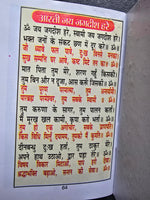 आरती जय जगदीश हरे
जय जगदीश हरे, स्वामी जय जगदीश हरे।
भक्त जनों के संकट क्षण में दूर करे॥ ॐ॥
जो ध्यावे फल पावे, दुःख विनशे मन का।
सुख सम्पत्ति घर आवे, कष्ट मिटे तन का॥ ॐ॥
मात पिता तुम मेरे, शरण गहूँ किसकी।
तुम बिन और न दूजा, आस करूँ जिसकी॥ ॐ॥
तुम पूरण परमात्मा, तुम अन्तर्यामी।
पारब्रह्म परमेश्वर, तुम सबके स्वामी॥ ॐ॥
तुम करुणा के सागर, तुम पालन कर्ता।
मैं मूरख खल कामी, कृपा करो भर्ता॥ ॐ॥
तुम हो एक अगोचर, सबके प्राणपति।
किस विधि मिलूँ दयामय, तुमको मैं कुमति॥ ॐ॥
दीनबन्धु दुःख हर्ता, तुम रक्षक मेरे।
अपने हाथ उठाओ, द्वार पड़ा तेरे॥ ॐ॥
विषय विकार मिटाओ, पाप हरो देवा।
श्रद्धाभक्ति बढ़ाओ, सन्तन की सेवा॥ ॐ॥
64